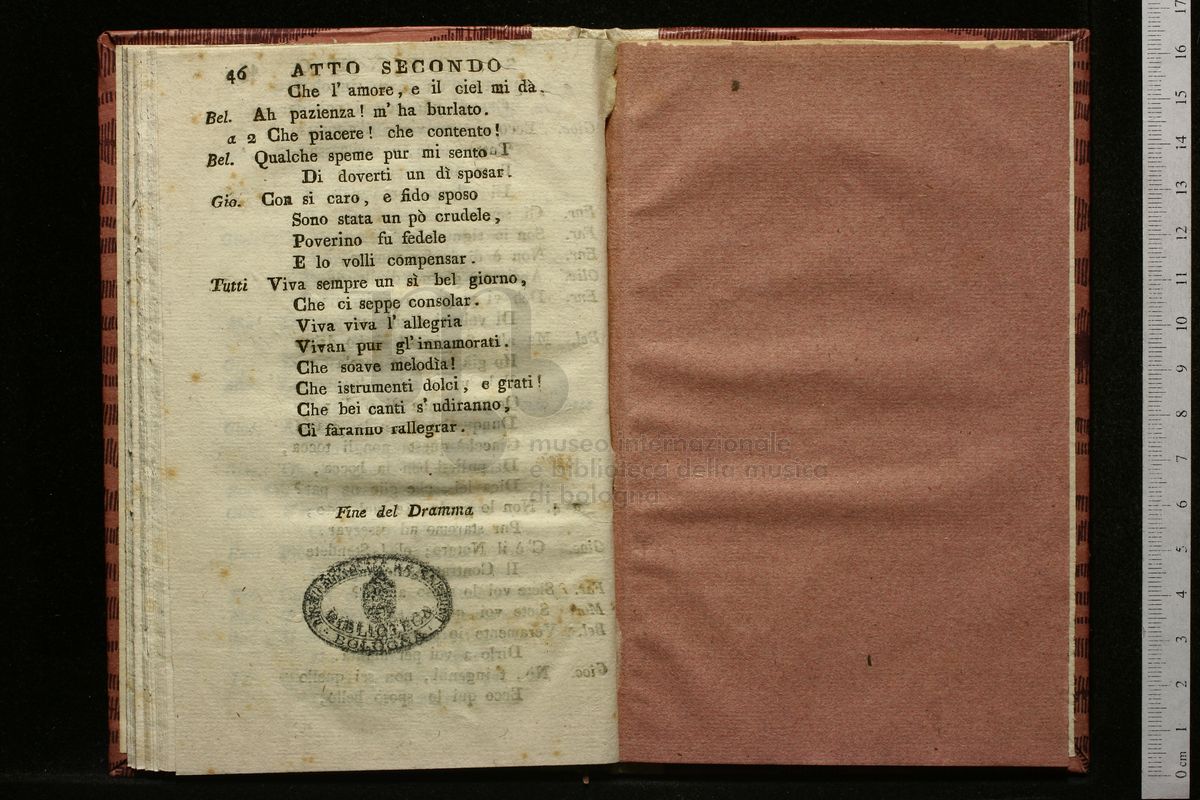 46 ATTO SECONDO
Che l' amore, e il ciel mi dà.
Bel. Ah pazienza! m' ha burlato.
a 2 Che piacere! che contento!
Bel. Qualche speme pur mi sento
Di doverti un dì sposar.
Gio. Con si caro, e fido sposo
Sono stata un pò crudele,
Poverino fu fedele
E lo volli compensar.
Tutti Viva sempre un sì bel giorno,
Che ci seppe consolar.
Viva viva l' allegria
Vivan pur gl' innamorati.
Che soave melodìa!
Che istrumenti dolci, e grati!
Che bei canti s' udiranno,
Ci faranno rallegrar.
Fine del Dramma
BIBLIOTECA
BOLOGNA
museo internazionale
e biblioteca della musica
di bologna
0 cm 1 2 3 4 5 6 7 8 9 10 11 12 13 14 15 16 17